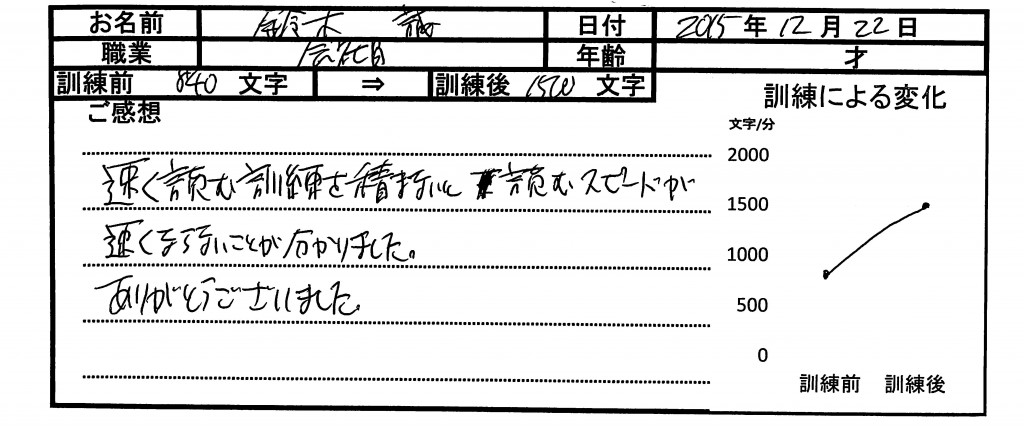 お名前 鈴木 誠 日付 2015年12月22日
職業 会社員 年齢 才
訓練前 840 文字 ⇒ 訓練後 1500 文字
ご感想
速く読む訓練を積まないと 読むスピードが
速くならないことが分かりました。
ありがとうございました。
訓練による変化
文字/分
2000
1500
1000
500
0
訓練前 訓練後